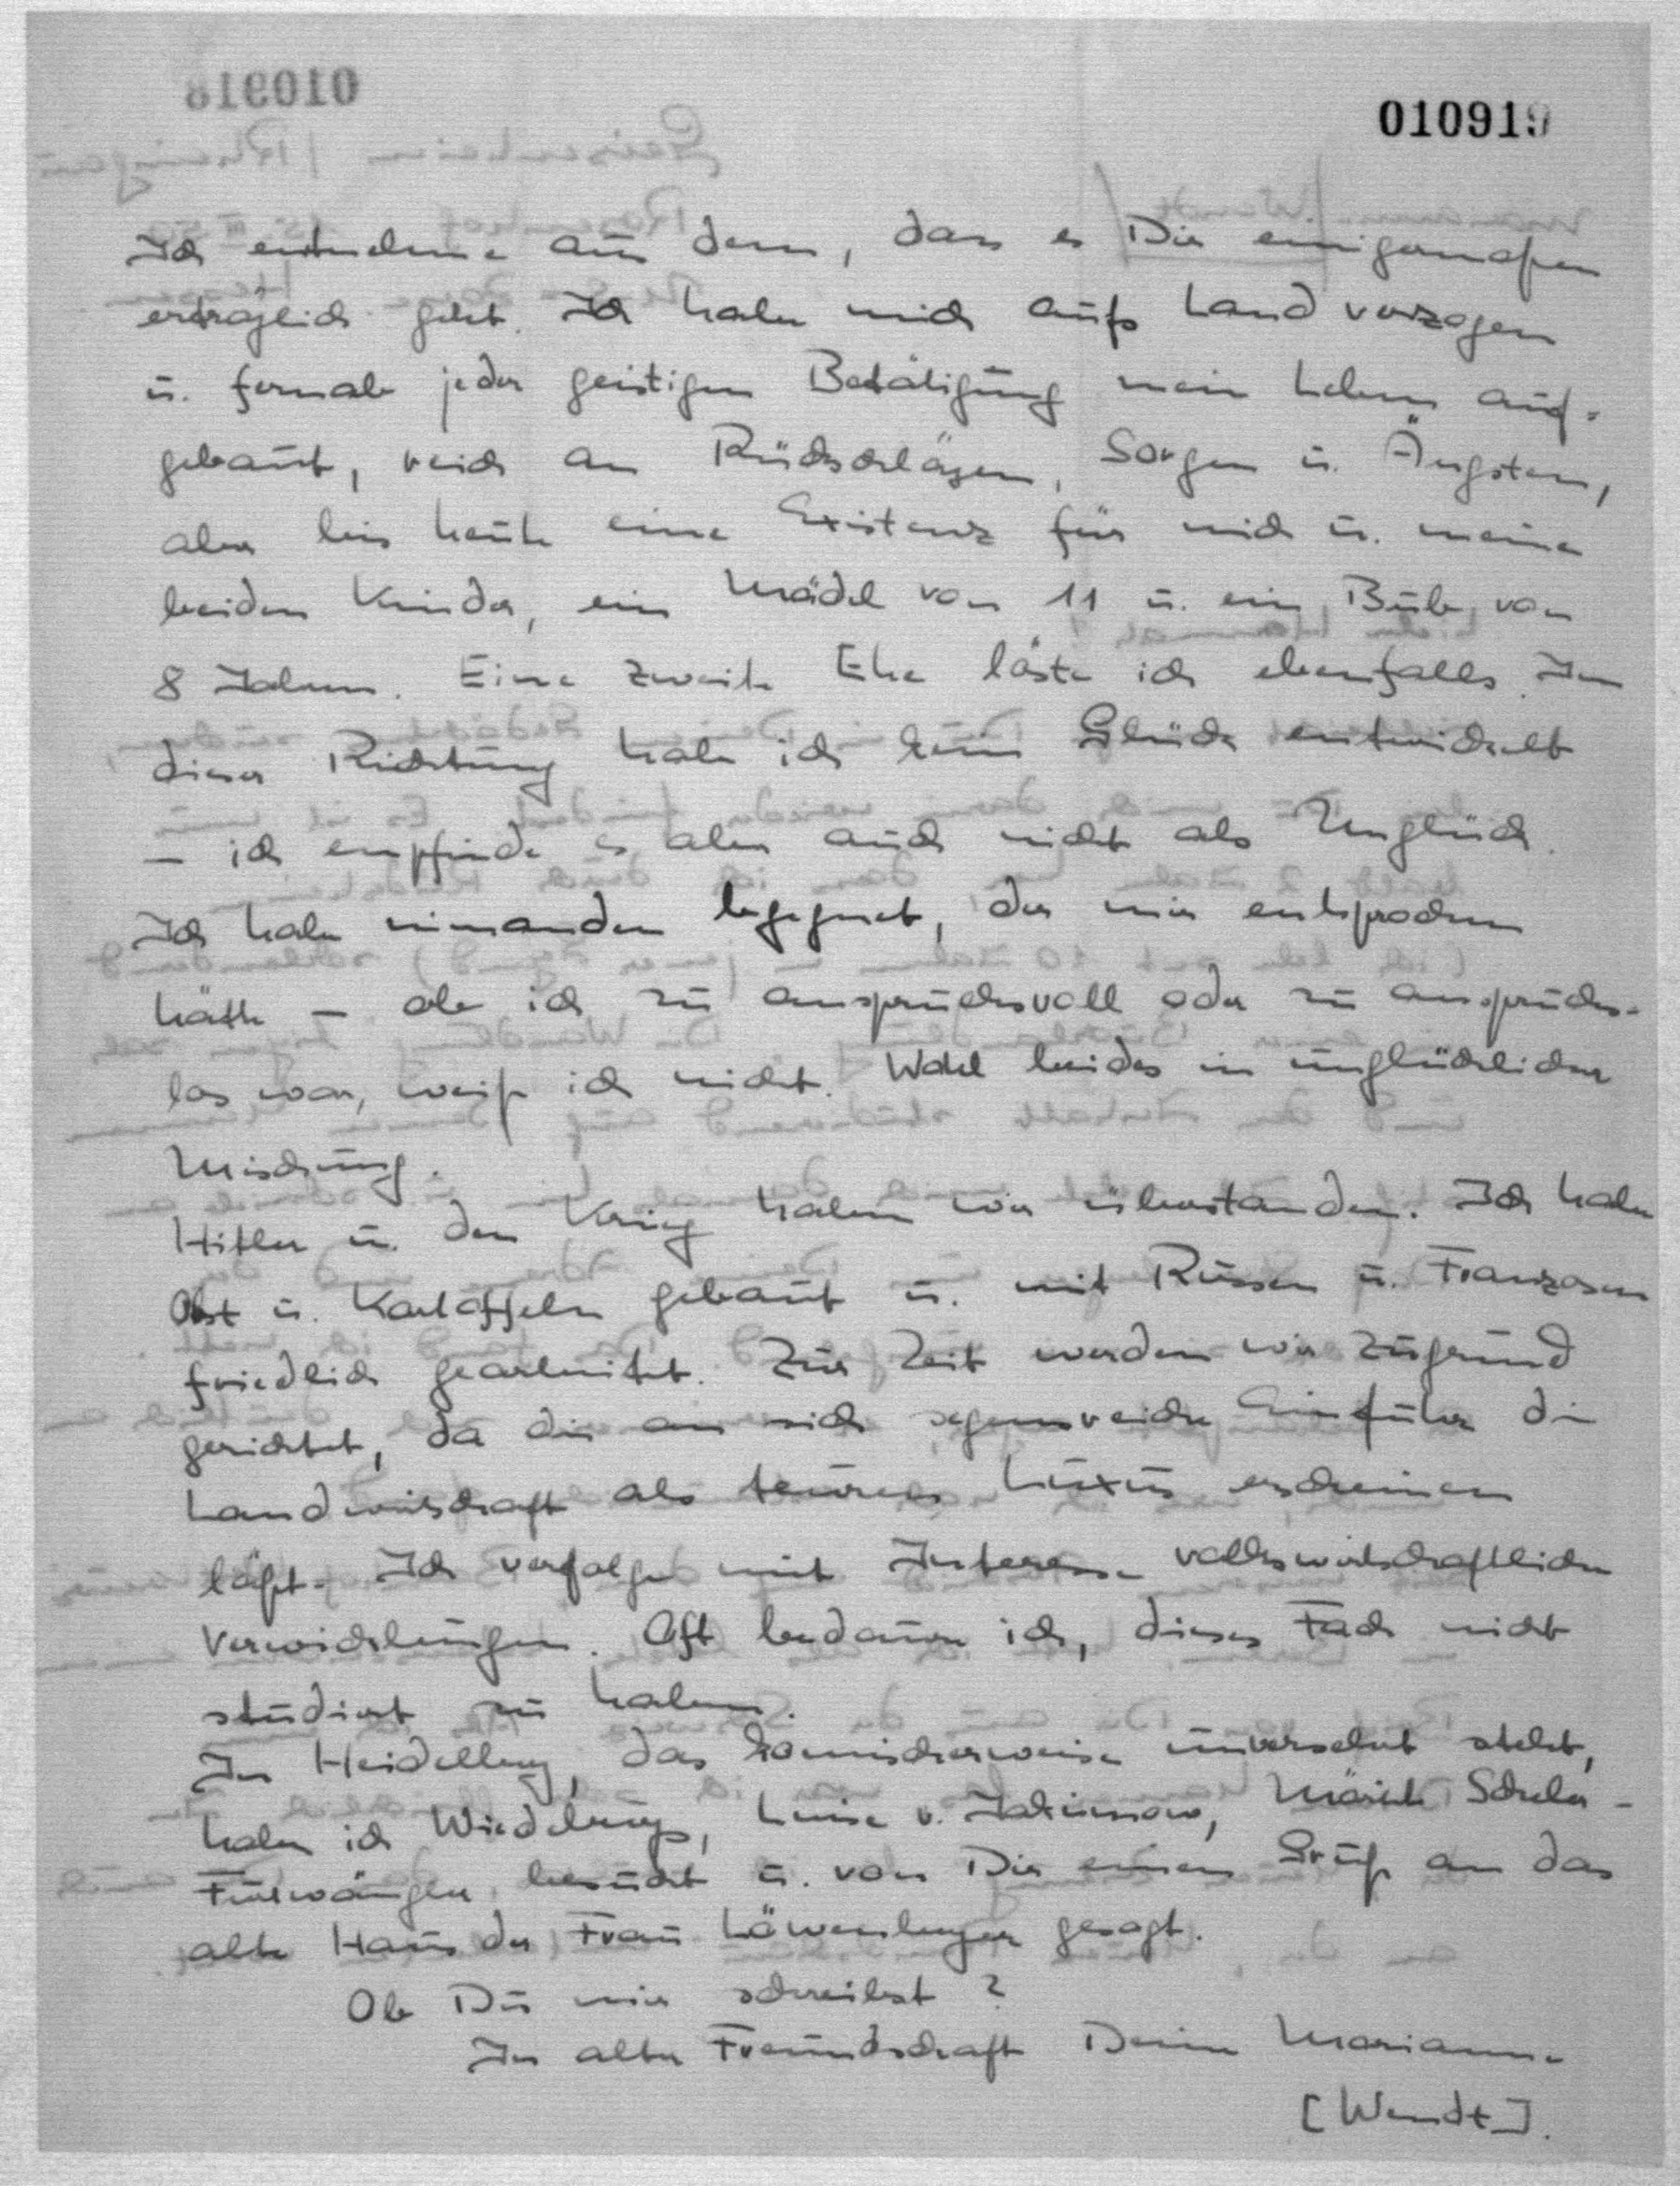 010919
Ich entnehme aus dem, dass es Dir einigermaßen
erträglich geht. Ich habe mich aufs Land verzogen
u. fernab jeder geistigen Betätigung mein Leben auf-
gebaut, reich an Rückschlägen, Sorgen u. Ängsten,
aber bis heute eine Existenz für mich u. meine
beiden Kinder, ein Mädel von 11 u. ein Bub von
8 Jahren. Eine zweite Ehe löste ich ebenfalls. In
dieser Richtung habe ich kein Glück entwickelt
– ich empfinde es aber auch nicht als Unglück.
Ich habe niemanden begegnet, der mir entsprochen
hätte – ob ich zu anspruchsvoll oder zu anspruchs-
los war, weiß ich nicht. Wohl beides in unglücklicher
Mischung.
Hitler u. den Krieg haben wir überstanden. Ich habe
Obst u. Kartoffeln gebaut u. mit Russen u. Franzosen
friedlich gearbeitet. Zur Zeit werden wir zugrund
gerichtet, da die an sich segensreiche Einfuhr die
Landwirtschaft als teuren Luxus erscheinen
läßt. Ich verfolge mit Interesse volkswirtschaftliche
Verwicklungen. Oft bedaure ich, dieses Fach nicht
studiert zu haben.
In Heidelberg, das komischerweise unversehrt steht,
habe ich Luise v. Jakimow,
besucht u. von Dir einen Gruß an das
alte Haus der Frau Löwenberger gesagt.
Ob Du mir schreibst?
In alter Freundschaft Deine Marianne
[Wendt].